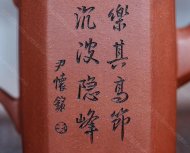 樂其高節
沉波隐峰
尹懷銘